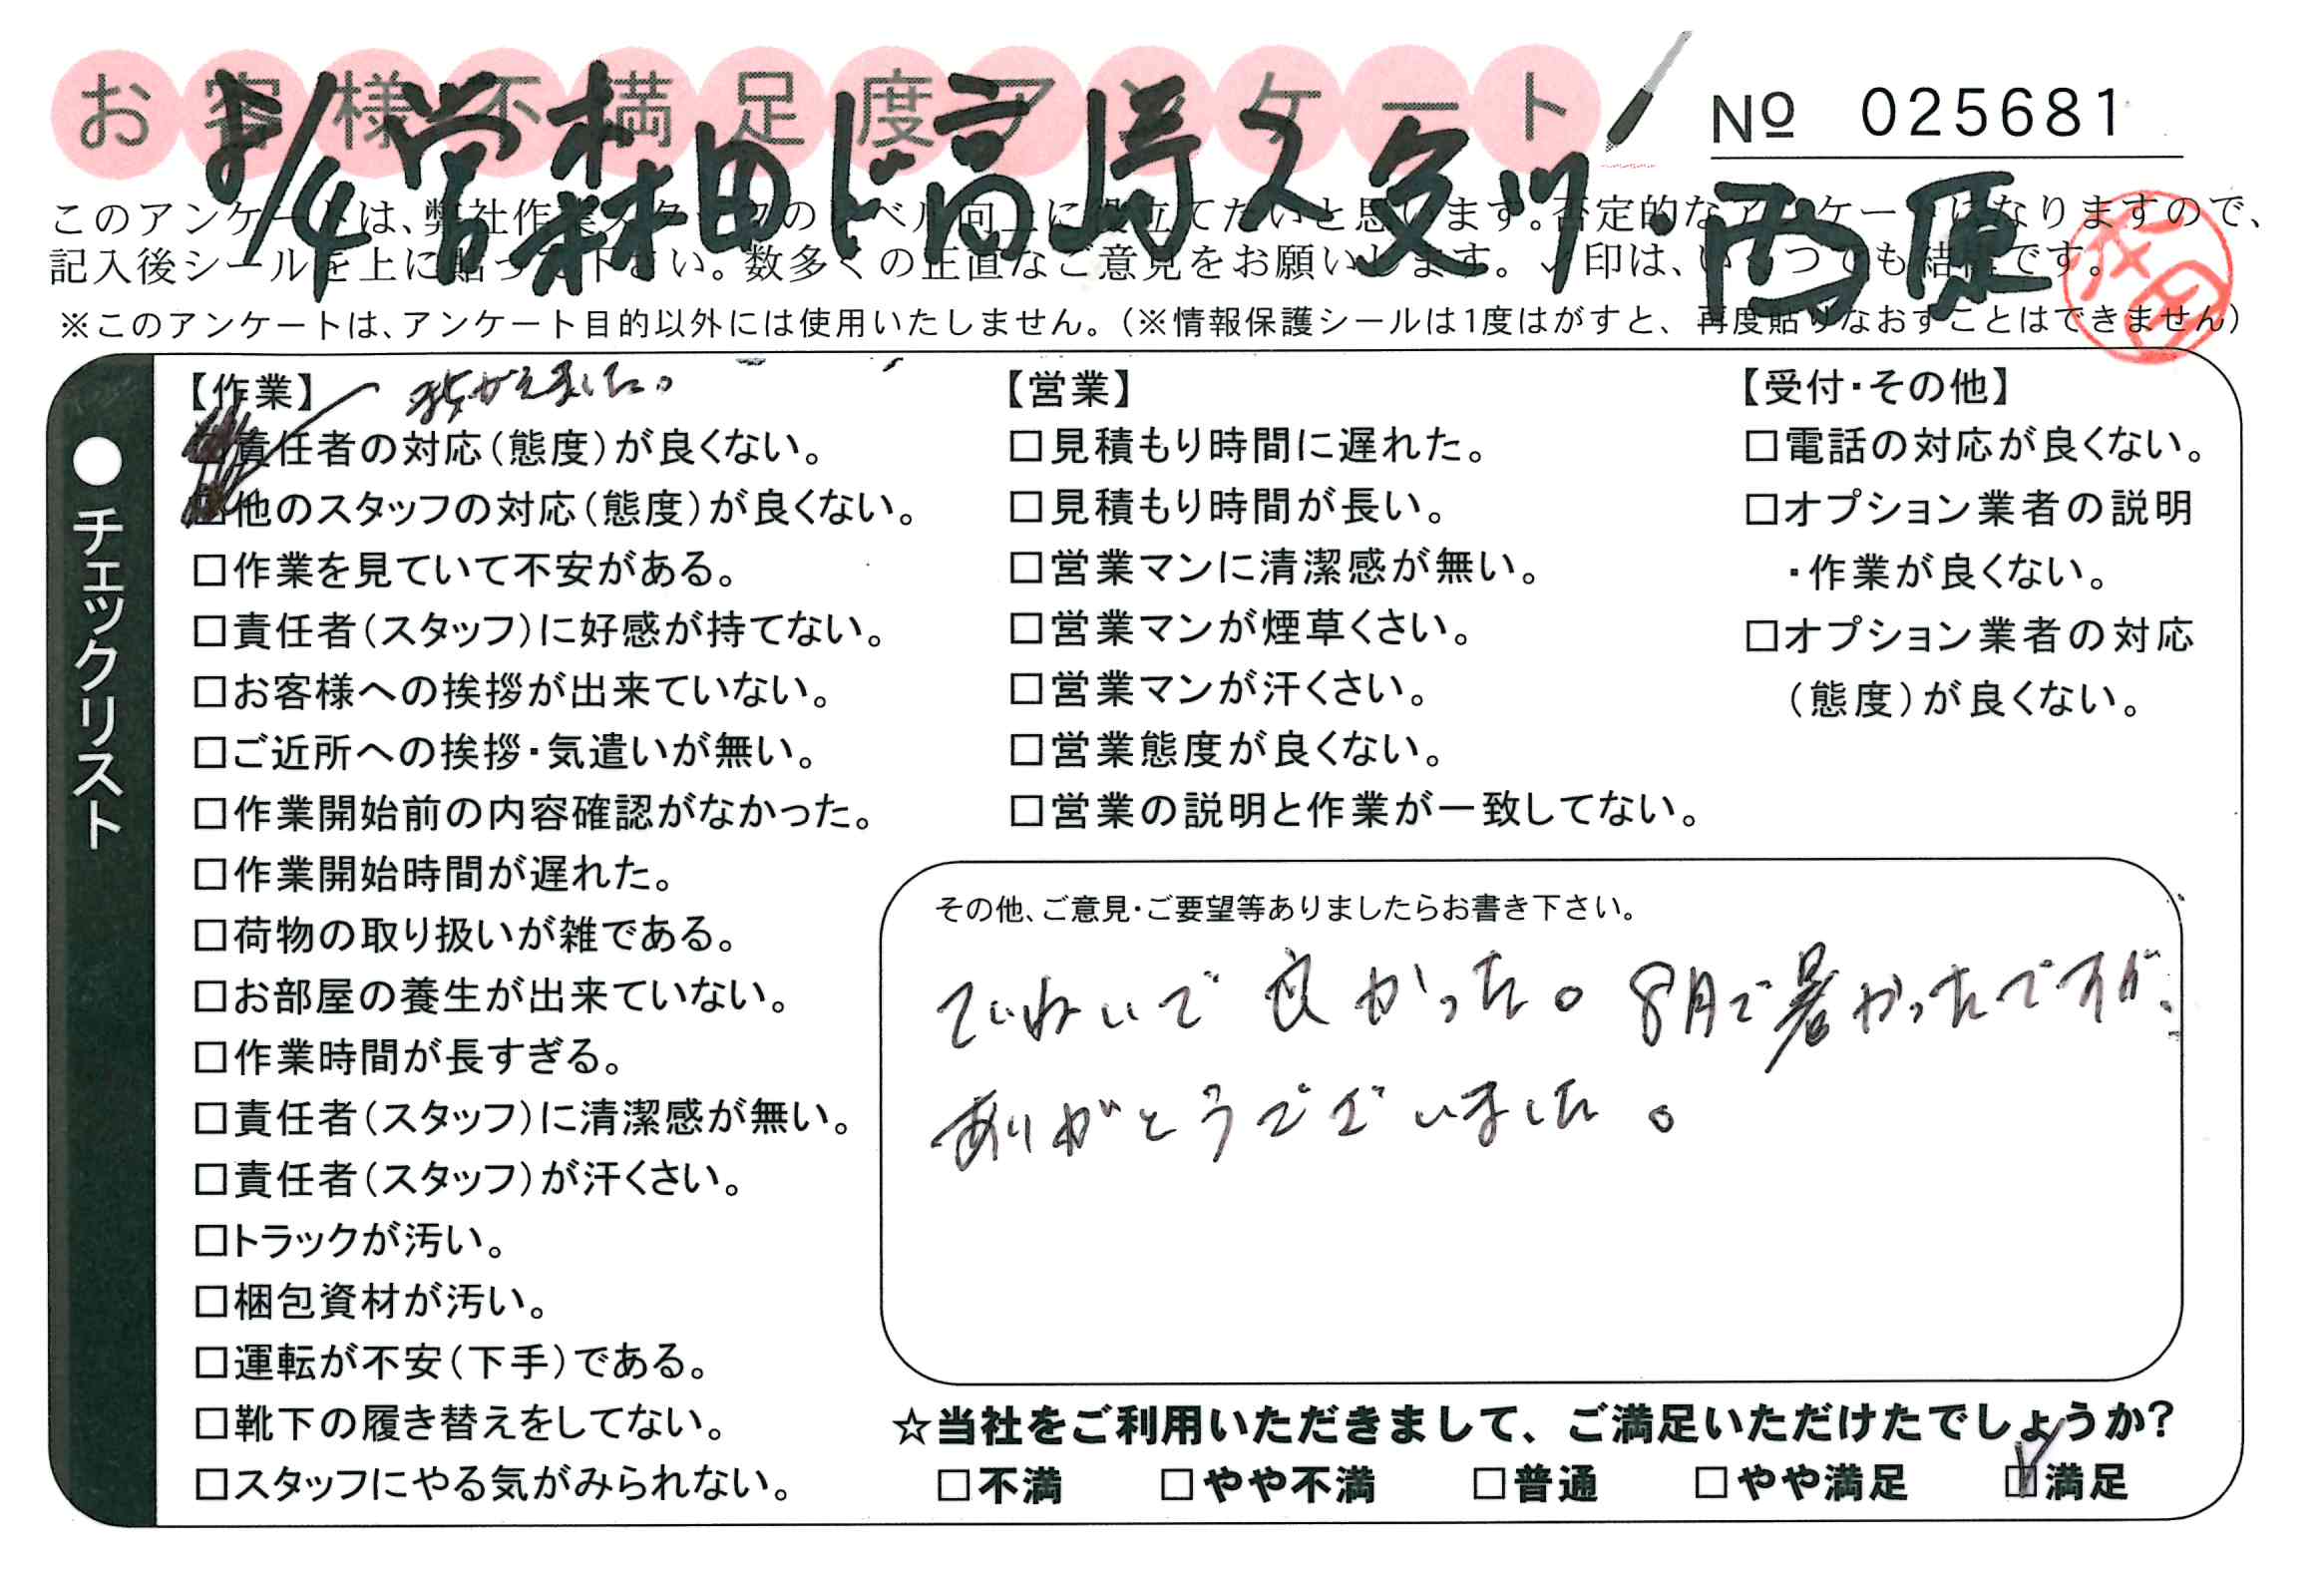 お客様不満足度アンケート
№ 025681
8/4 営 森田 ド 高崎 久多川・西原
このアンケートは、弊社作業スタッフのレベル向上に役立てたいと思います。否定的なアンケートになりますので、
記入後シールを上に貼って下さい。数多くの正直なご意見をお願いします。✓印は、いくつでも結構です。
※このアンケートは、アンケート目的以外には使用いたしません。(※情報保護シールは1度はがすと、再度貼りなおすことはできません)
●チェックリスト
【作業】
まちがえました。
責任者の対応(態度)が良くない。
他のスタッフの対応(態度)が良くない。
□作業を見ていて不安がある。
□責任者(スタッフ)に好感が持てない。
□お客様への挨拶が出来ていない。
□ご近所への挨拶・気遣いが無い。
□作業開始前の内容確認がなかった。
□作業開始時間が遅れた。
□荷物の取り扱いが雑である。
□お部屋の養生が出来ていない。
□作業時間が長すぎる。
□責任者(スタッフ)に清潔感が無い。
□責任者(スタッフ)が汗くさい。
□トラックが汚い。
□梱包資材が汚い。
□運転が不安(下手)である。
□靴下の履き替えをしてない。
□スタッフにやる気がみられない。
【営業】
□見積もり時間に遅れた。
□見積もり時間が長い。
□営業マンに清潔感が無い。
□営業マンが煙草くさい。
□営業マンが汗くさい。
□営業態度が良くない。
□営業の説明と作業が一致してない。
【受付・その他】
□電話の対応が良くない。
□オプション業者の説明
・作業が良くない。
□オプション業者の対応
(態度)が良くない。
その他、ご意見・ご要望等ありましたらお書き下さい。
ていねいで良かった。8月で暑かったですが、
ありがとうございました。
☆当社をご利用いただきまして、ご満足いただけたでしょうか?
□不満 □やや不満 □普通 □やや満足 ☑満足